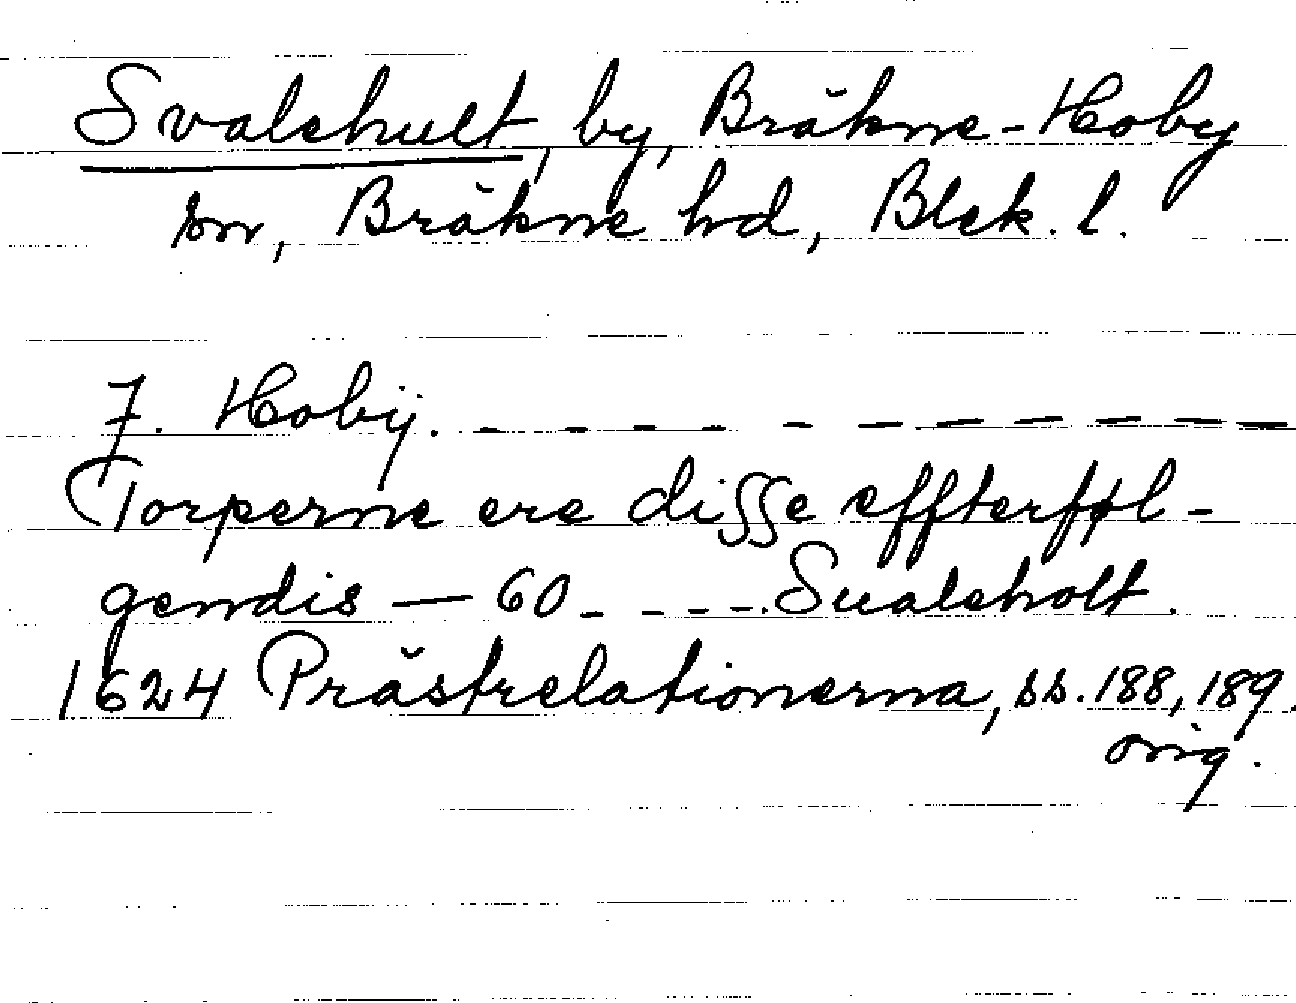 Svalehult, by, Bräkne-Hoby
sn, Bräkne hd, Blek. l.
7. Hobÿ. - - - - - - - - - - - -
Torperne ere disse effterføl-
gendis — 60 - - - - . Sualeholt.
1624 Prästrelationerna, ss. 188, 189.
orig.